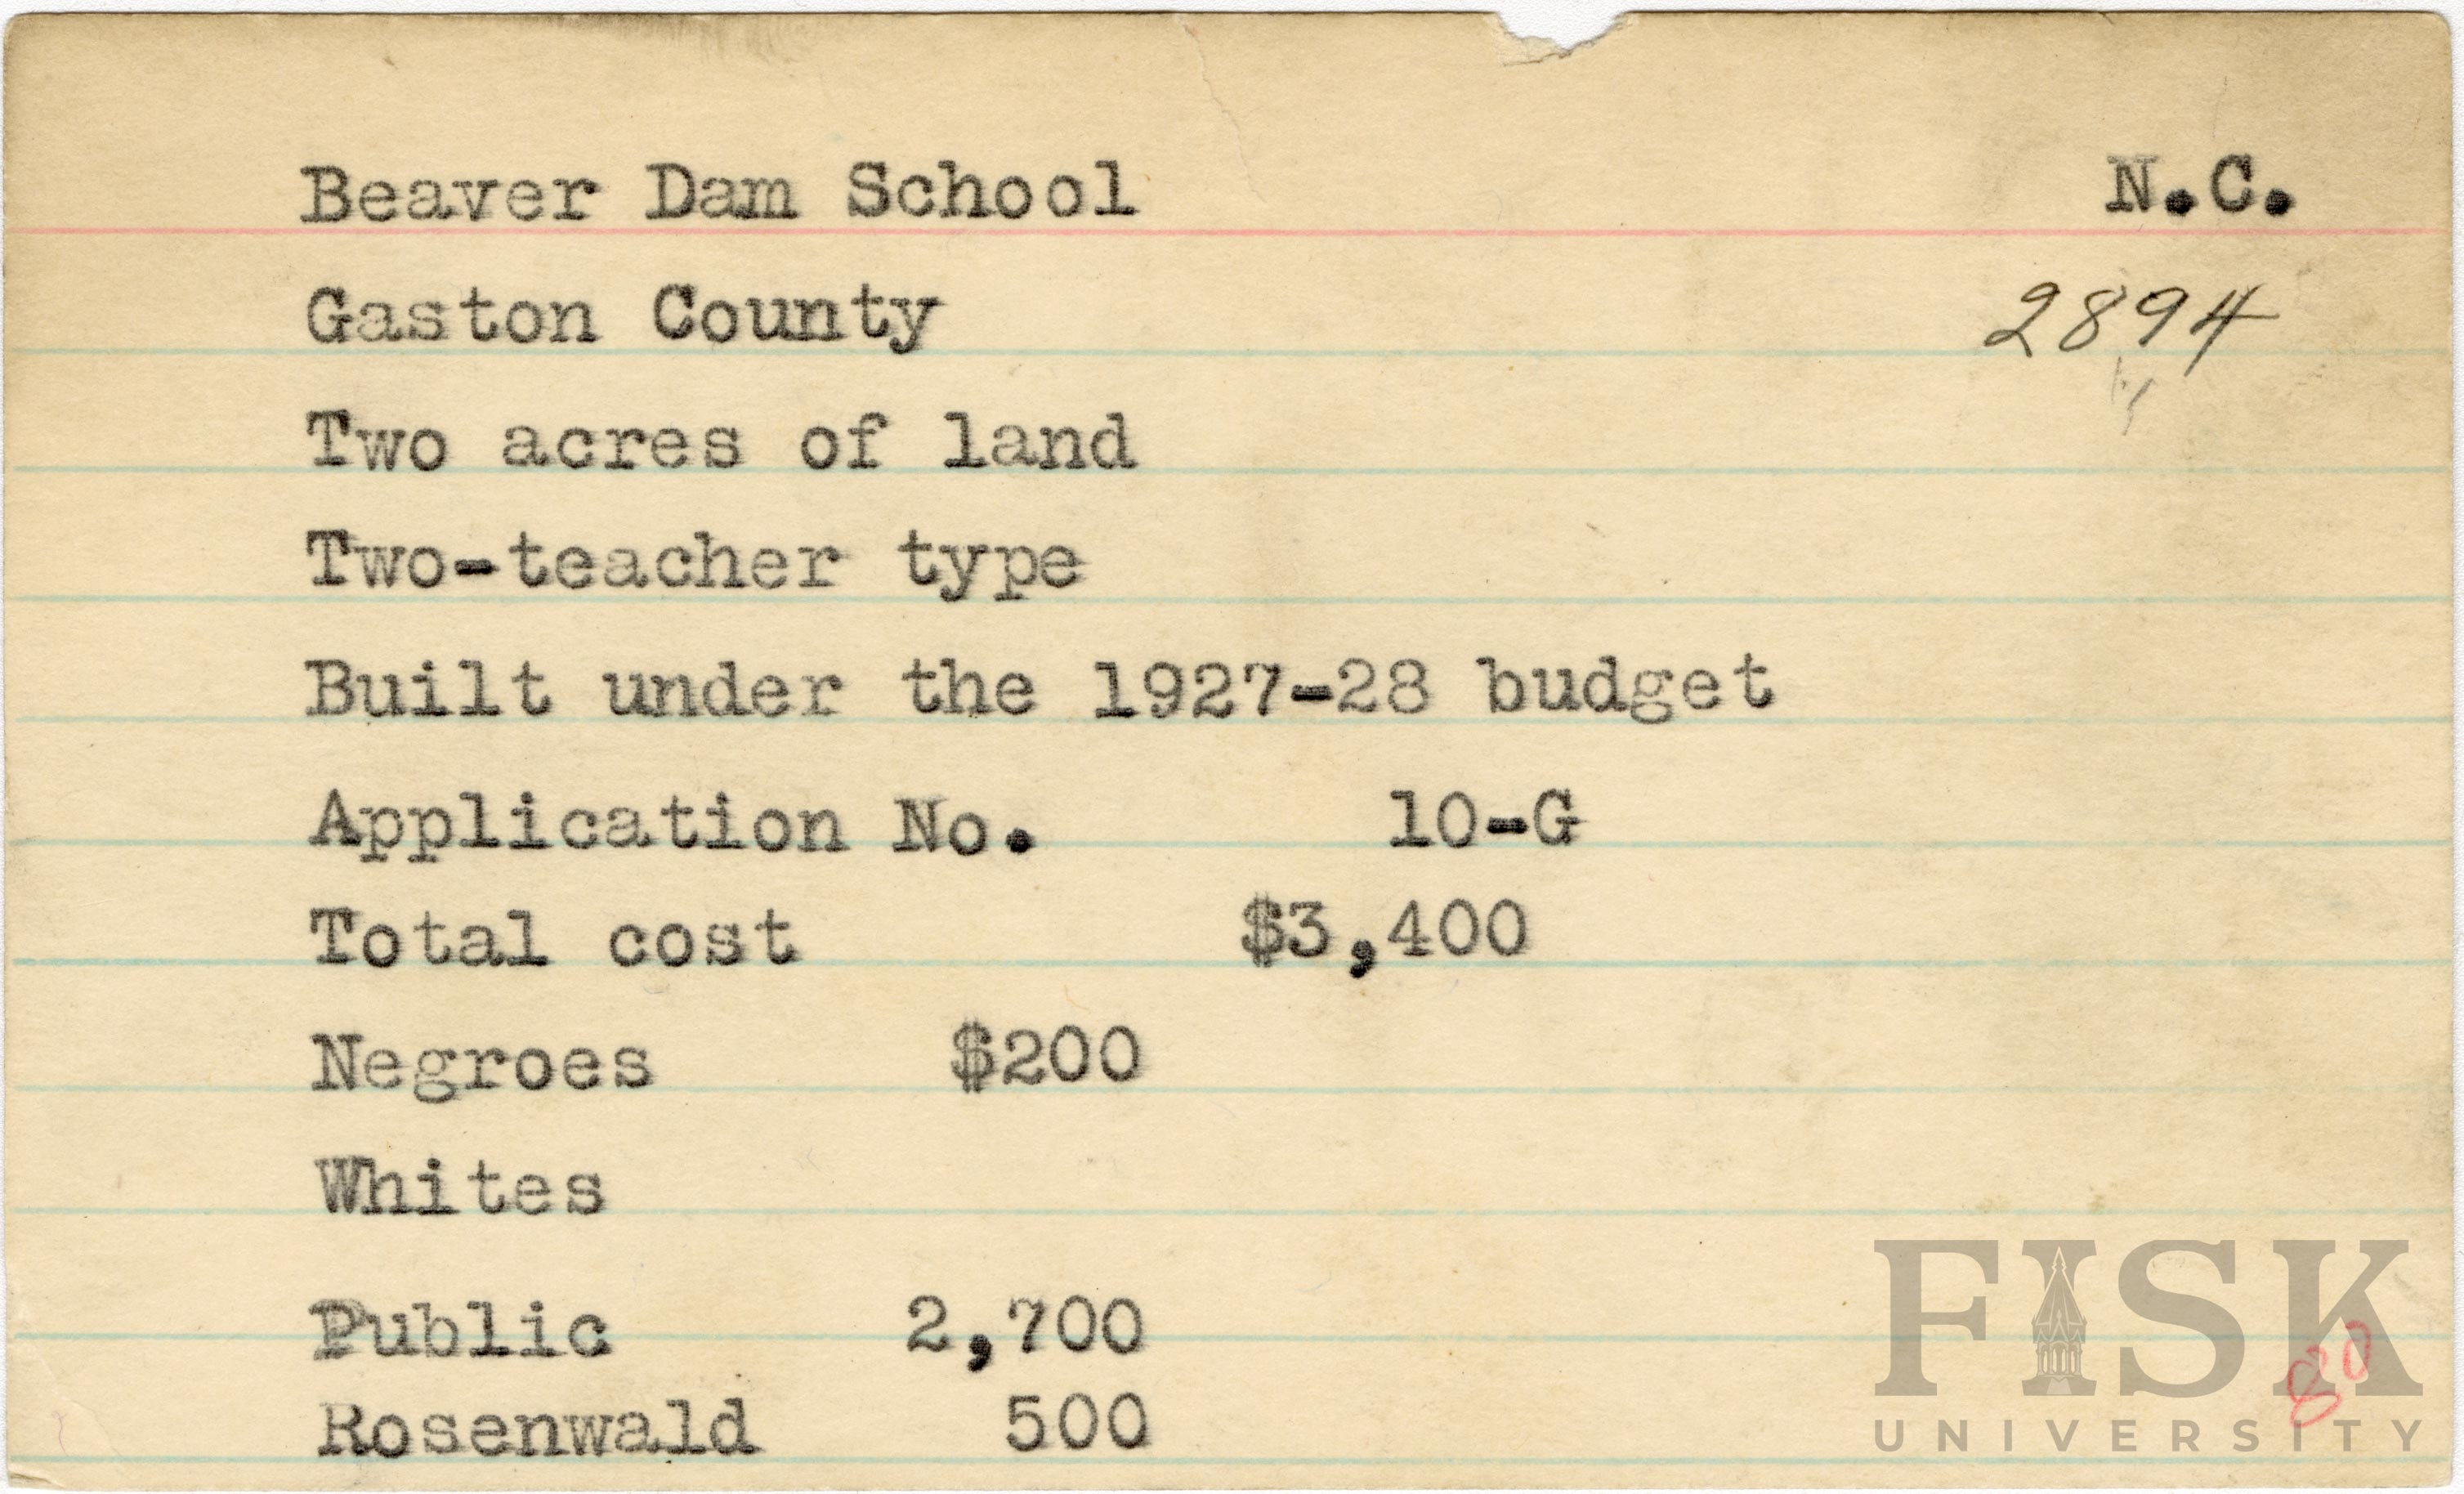 Beaver Dam School N.C.
Gaston County 2894
Two acres of land
Two-teacher type
Built under the 1927-28 budget
Application No. 10-G
Total cost $3,400
Negroes $200
Whites
Public 2,700
Rosenwald 500
FISK
80
UNIVERSITY